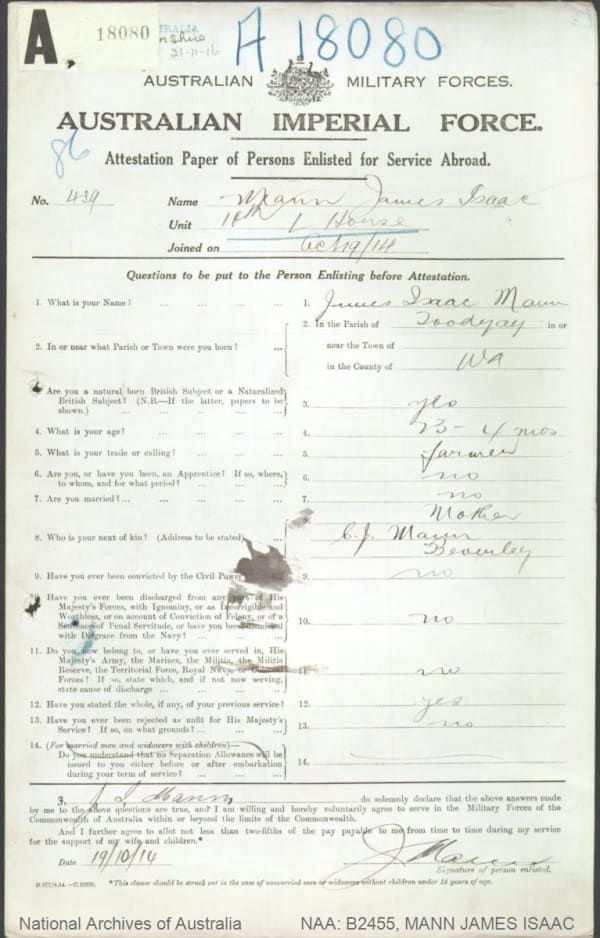 A 18080
TRALIA
21-11-16
A 18080
AUSTRALIAN MILITARY FORCES.
AUSTRALIAN IMPERIAL FORCE.
86
Attestation Paper of Persons Enlisted for Service Abroad.
No. 439 Name Mann James Isaac
Unit 10th L Horse
Joined on Oct 19/14
Questions to be put to the Person Enlisting before Attestation.
1. What is your Name? ... ... ... ... 1. James Isaac Mann
2. In or near what Parish or Town were you born? ... 2. In the Parish of Toodyay in or
near the Town of
in the County of WA
3. Are you a natural born British Subject or a Naturalized
British Subject? (N.B.—If the latter, papers to be
shown.) ... ... ... ... 3. yes
4. What is your age? ... ... ... ... 4. 23 - 4 mos
5. What is your trade or calling? ... ... ... 5. farmer
6. Are you, or have you been, an Apprentice? If so, where,
to whom, and for what period? ... ... ... 6. no
7. Are you married? ... ... ... ... 7. no
8. Who is your next of kin? (Address to be stated) ... 8. Mother
C. J. Mann
Beverley
9. Have you ever been convicted by the Civil Power 9. no
10. Have you ever been discharged from any part of His
Majesty's Forces, with Ignominy, or as Incorrigible and
Worthless, or on account of Conviction of Felony, or of a
Sentence of Penal Servitude, or have you been Dismissed
with Disgrace from the Navy? ... ... ... 10. no
11. Do you now belong to, or have you ever served in, His
Majesty's Army, the Marines, the Militia, the Militia
Reserve, the Territorial Force, Royal Navy, or
Forces? If so, state which, and if not now serving,
state cause of discharge ... ... ... 11. no
12. Have you stated the whole, if any, of your previous service? 12. yes
13. Have you ever been rejected as unfit for His Majesty's
Service? If so, on what grounds? ... ... 13. no
14. (For married men and widowers with children)—
Do you understand that no Separation Allowance will be
issued to you either before or after embarkation
during your term of service? ... ... ... 14.
3. J. I. Mann do solemnly declare that the above answers made
by me to the above questions are true, and I am willing and hereby voluntarily agree to serve in the Military Forces of the
Commonwealth of Australia within or beyond the limits of the Commonwealth.
And I further agree to allot not less than two-fifths of the pay payable to me from time to time during my service
for the support of my wife and children.*
Date 19/10/14 J Mann
Signature of person enlisted.
*This clause should be struck out in the case of unmarried men or widowers without children under 18 years of age.
National Archives of Australia NAA: B2455, MANN JAMES ISAAC